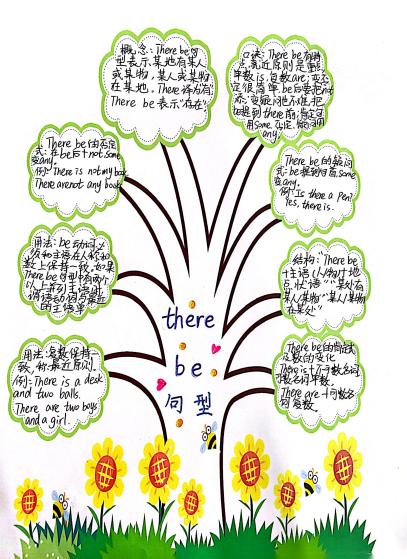 概念:There be句
型表示某地有某人
或某物,某人或某物
在某地。There译为"有"
There be 表示"存在"
口诀:There be有特
点,就近原则是重点,
单数is,复数are;变否
定很简单,be后要把not
添;变疑问也不难,把
be提到there前;肯定句
用some,否定、疑问用
any.
There be的否定
式:在be后+not, some
变any.
例:There is not my box.
There are not any books.
There be的疑问
式:be提到句首,some
变any.
例:Is there a Pen?
Yes, there is.
用法:be动词必
须和主语在人称和
数上保持一致,如果
There be句型中有两个
以上并列主语时,
谓语动词与最近
的主语一
结构:There be
+主语(人/物)+地
点状语"某处有
某人某物""某人/某物
在某处"
用法:复数保持一
致,称就近原则.
例:There is a desk
and two balls.
There are two boys
and a girl.
There be的肯定式
及数的变化
There is+可数名词
单数.
There are+可数名
词复数.
there
be
句型